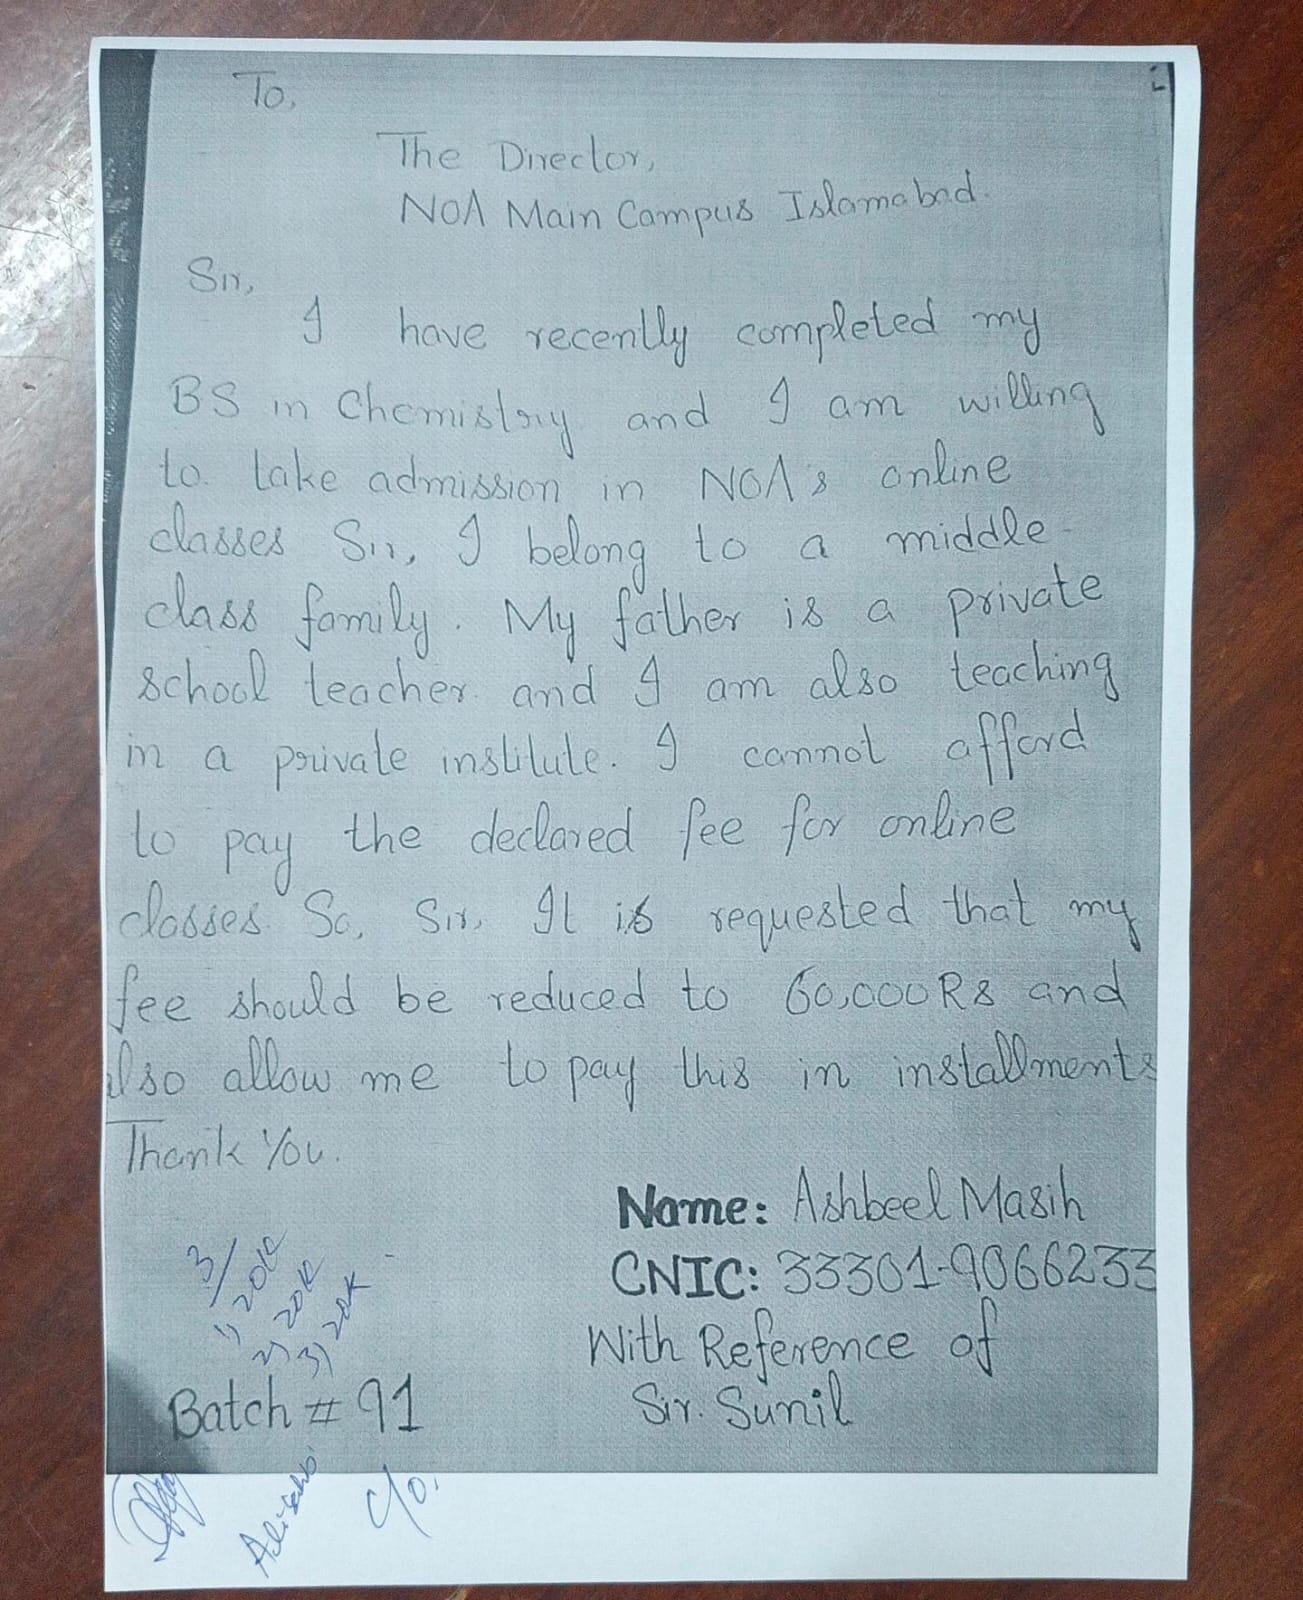 To,
The Director,
NOA Main Campus Islamabad.
Sir,
I have recently completed my
BS in Chemistry and I am willing
to take admission in NOA's online
classes Sir, I belong to a middle-
class family. My father is a private
school teacher and I am also teaching
in a private institute. I cannot afford
to pay the declared fee for online
classes. So, Sir, It is requested that my
fee should be reduced to 60,000 Rs and
also allow me to pay this in installments
Thank You.
Name: Ashbeel Masih
CNIC: 33301-9066233
With Reference of
Sir. Sunil
3/
1) 20k
2) 20k
3) 20k
Batch # 91
c/o.